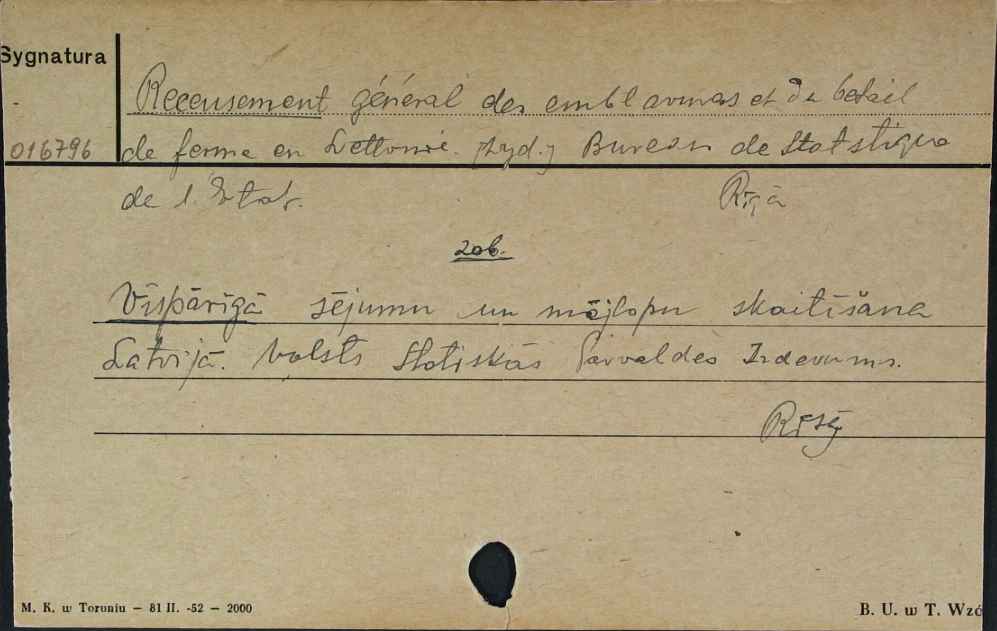 Sygnatura
Recensement général des emblavures et du betail
016796 de ferme en Lettonie. [Wyd.] Bureau de Statistique
de l. Etat. Rīgā
zob.
Vispārīgā sējumu un mājlopu skaitīšana
Latvijā. Valsts Statiskās Pārvaldes Izdevums.
M. K. w Toruniu — 81 II. -52 — 2000 B. U. w T. Wzó